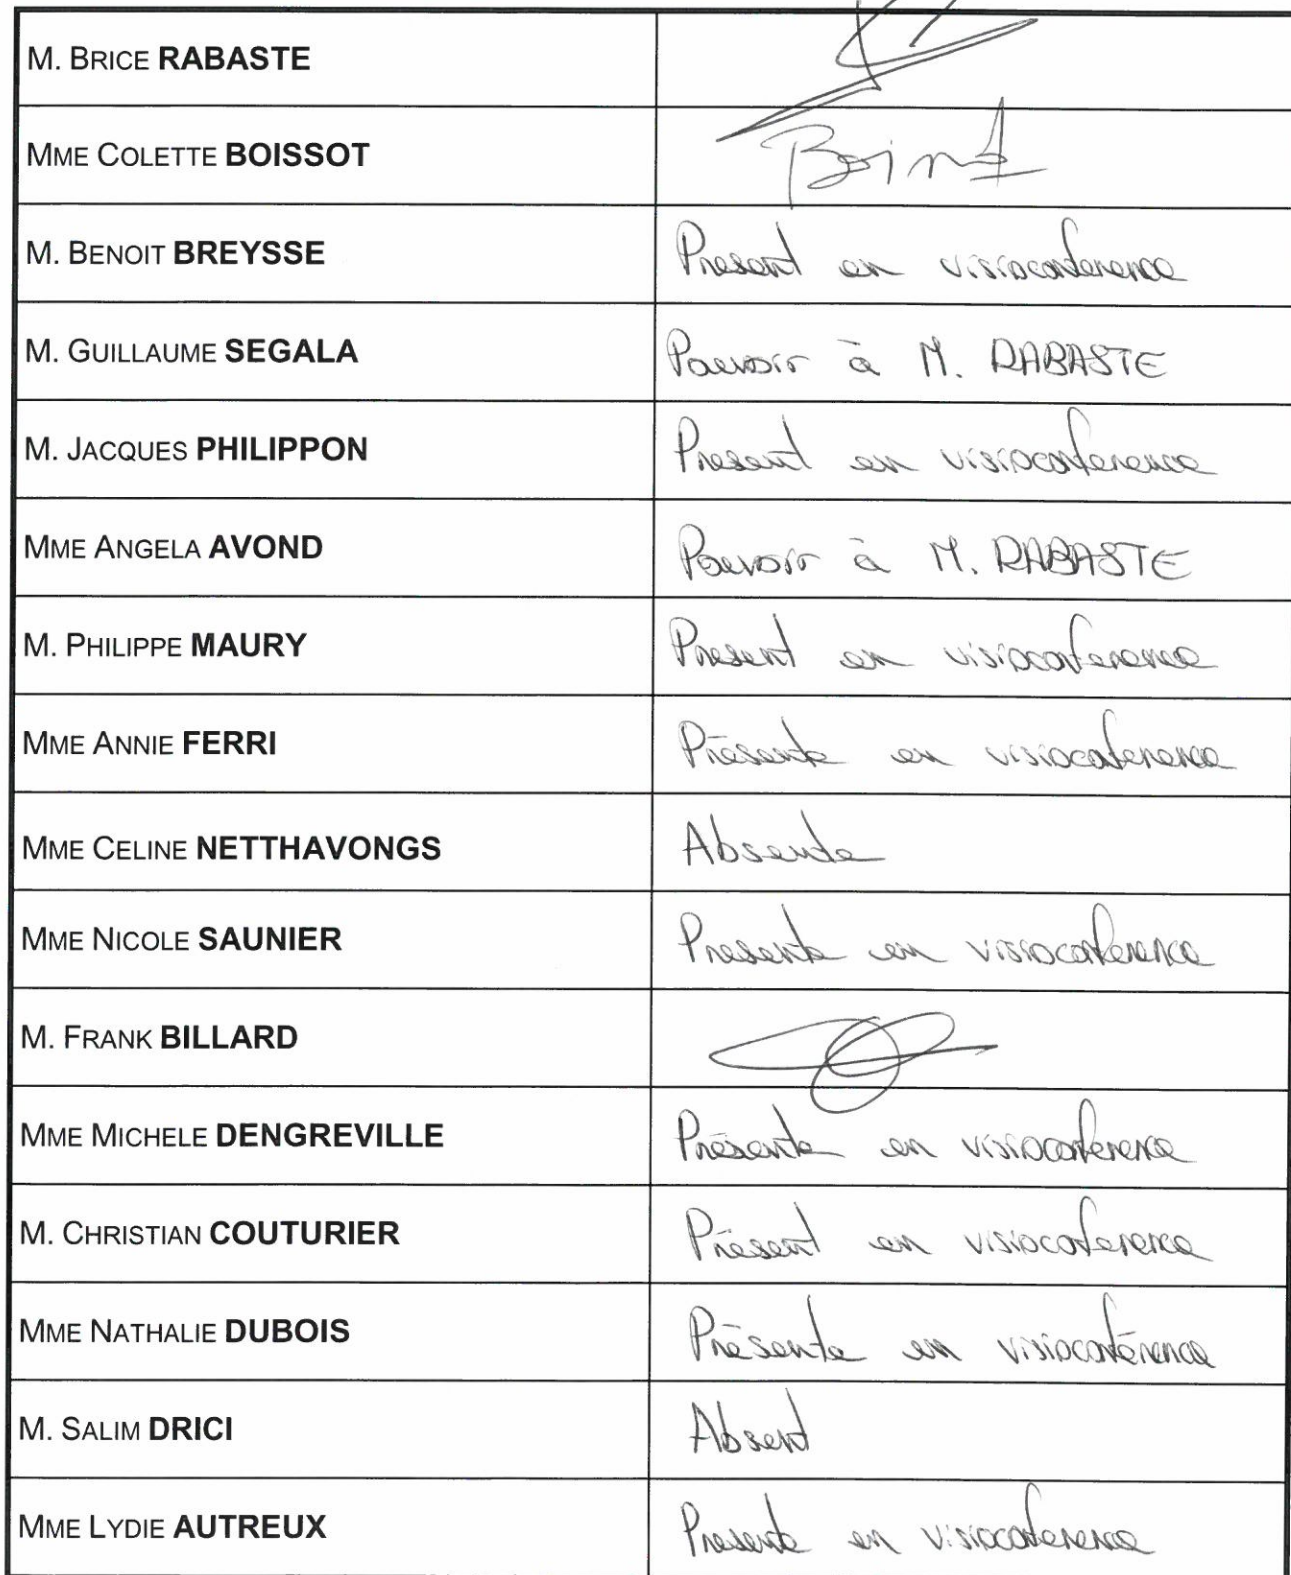 M. BRICE RABASTE
MME COLETTE BOISSOT
M. BENOIT BREYSSE Present en visioconference
M. GUILLAUME SEGALA Pouvoir à M. RABASTE
M. JACQUES PHILIPPON Present en visioconference
MME ANGELA AVOND Pouvoir à M. RABASTE
M. PHILIPPE MAURY Present en visioconference
MME ANNIE FERRI Présente en visioconference
MME CELINE NETTHAVONGS Absente
MME NICOLE SAUNIER Presente en visioconference
M. FRANK BILLARD
MME MICHELE DENGREVILLE Présente en visioconference
M. CHRISTIAN COUTURIER Présent en visioconference
MME NATHALIE DUBOIS Présente en visioconférence
M. SALIM DRICI Absent
MME LYDIE AUTREUX Presente en visioconference